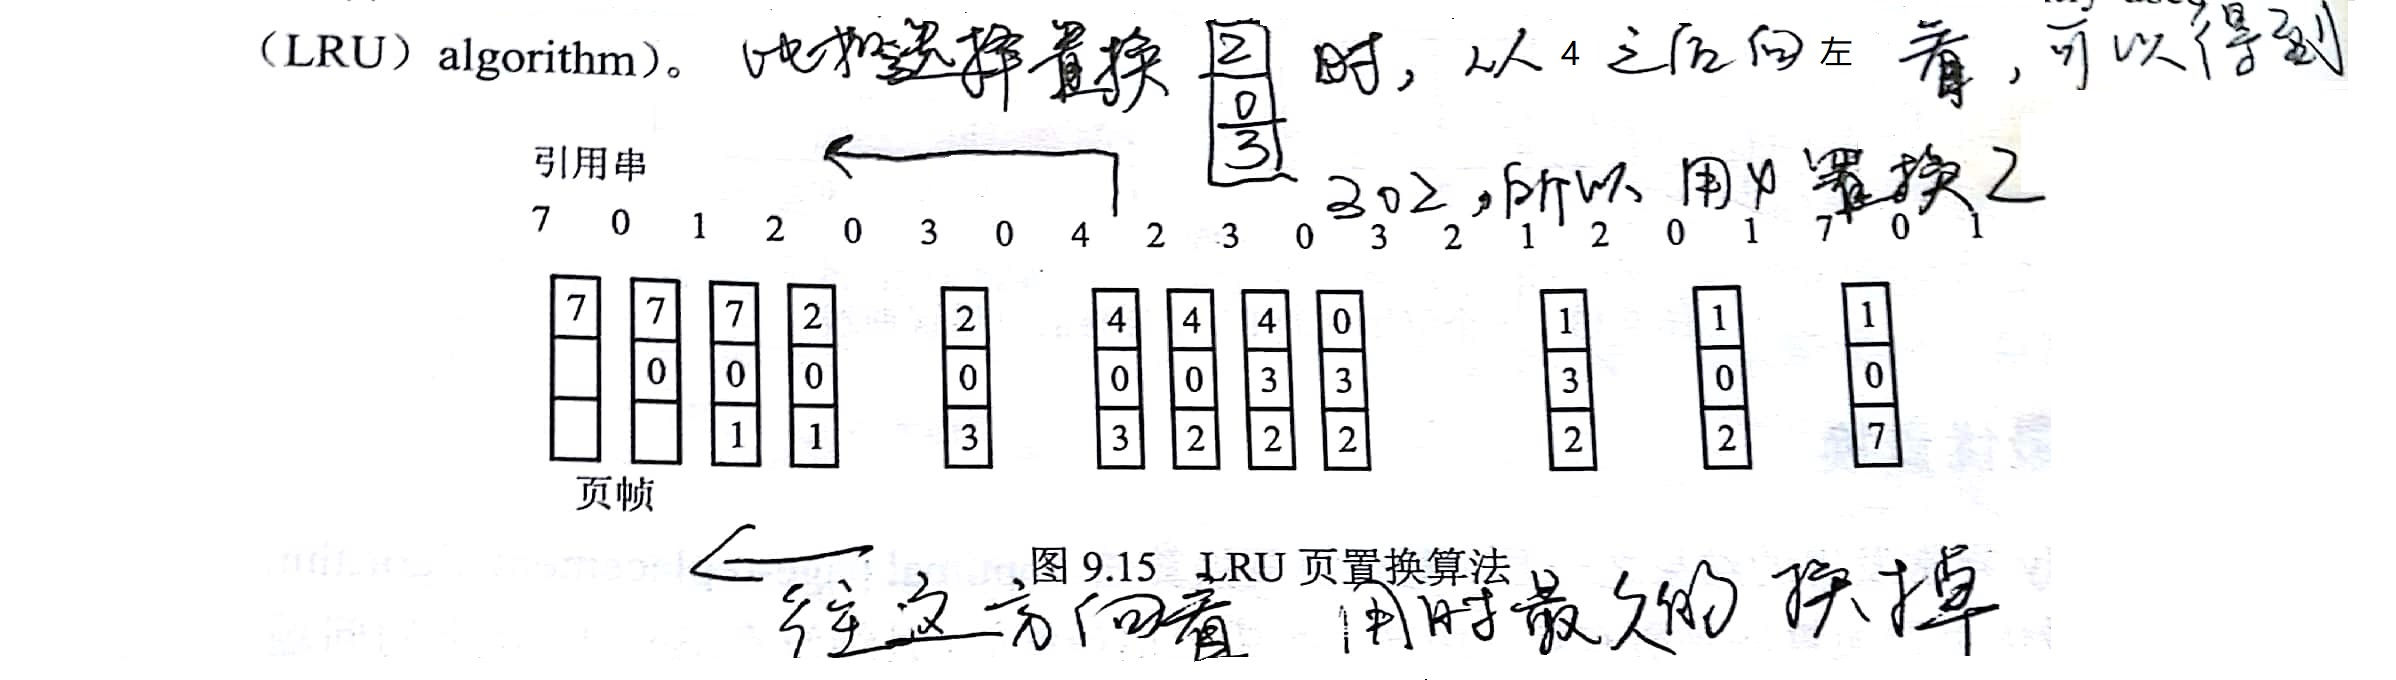 （LRU）algorithm）。 比如选择置换 2 0 3 时，从 4 之后向 左 看，可以得到
302，所以 用4 置换2
引用串
7 0 1 2 0 3 0 4 2 3 0 3 2 1 2 0 1 7 0 1
7 7 7 2 2 4 4 4 0 1 1 1
0 0 0 0 0 0 3 3 3 0 0
1 1 3 3 2 2 2 2 2 7
页帧
图 9.15 LRU 页置换算法
往这方向看 用时最久的 换掉